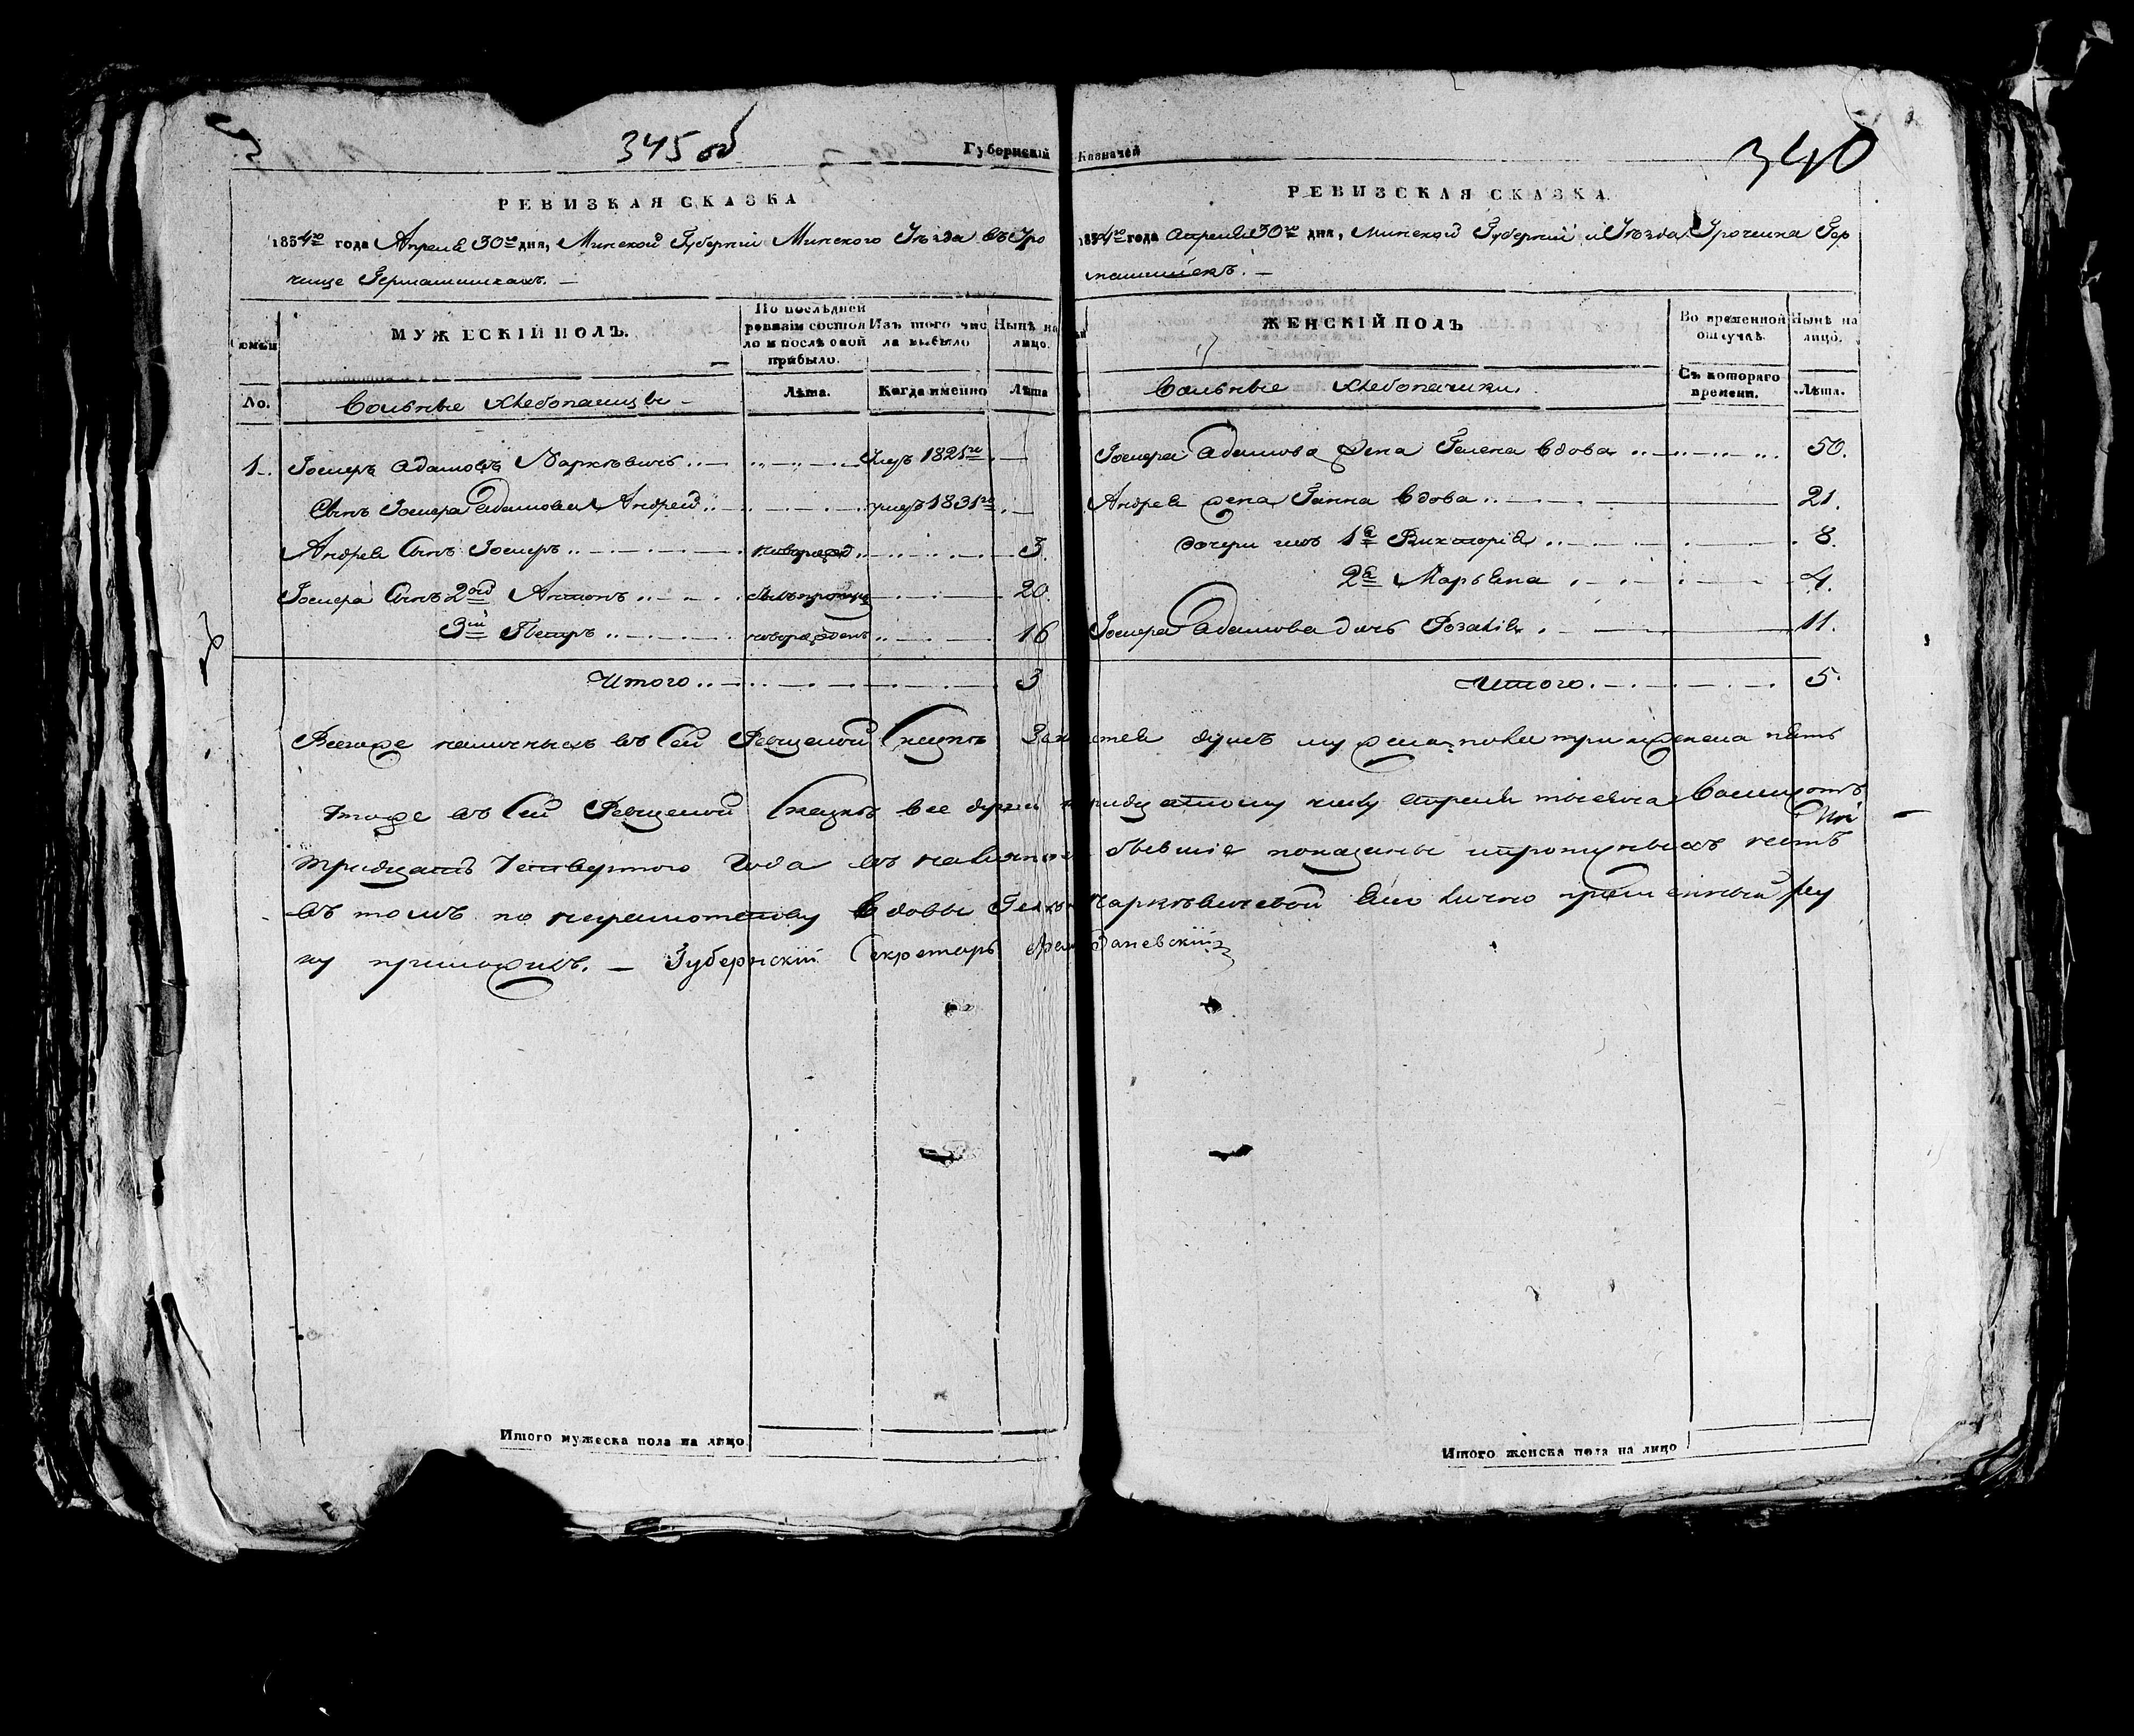 345 об
Губернскій Казначей
340
РЕВИЗКАЯ СКАЗКА
1834го года Апреля 30го дня, Минской Губерніи Минского Уезда въ Уро
чище Гермашишкахъ. —
Семьи
МУЖЕСКІЙ ПОЛЪ.
По послѣдней ревизіи состояло и послѣ оной прибыло.
Изъ того числа выбыло
Нынѣ на лицо.
No.
Вольные Хлебопашцы -
Лѣта.
Когда именно
Лѣта
1. Іосифъ Адамовъ Умеръ 1825го
Сынъ Іосифа Адамова Андрей умеръ 1831го
Андрея Сынъ Іосифъ новорожд 3.
Іосифа Сынъ 2ой Антонъ 20.
3ій Петръ новорожденъ 16
Итого 3
РЕВИЗСКАЯ СКАЗКА
1834го года Апреля 30го дня, Минской Губерніи и Уезда Урочища Гер
машишекъ. —
ЖЕНСКІЙ ПОЛЪ
Во временной отлучкѣ.
Нынѣ на лицо.
Вольные Хлебопашки.
Съ котораго времени.
Лѣта.
Іосифа Адамова Жена Гелена вдова 50.
Андрея жена Ганна вдова 21.
дочери ихъ 1я Викторія 8.
2я Марьяна 4.
Іосифа Адамова дочь Розалія 11.
Итого 5.
Всегоже наличныхъ въ Сей Ревизской Сказке душъ мужеска пола три и женска пять
Чтоже въ Сей Ревизской Сказкѣ все души тридцатому числу Апреля тысяча Восемсотъ
тридцать Четвертого Года въ бывшіе показаны и пропущеныхъ нетъ
въ томъ по неграмотному вдовы личною прозьбой ру
ку приложилъ. — Губернскій Секретарь
Итого мужеска пола на лицо
Итого женска пола на лицо